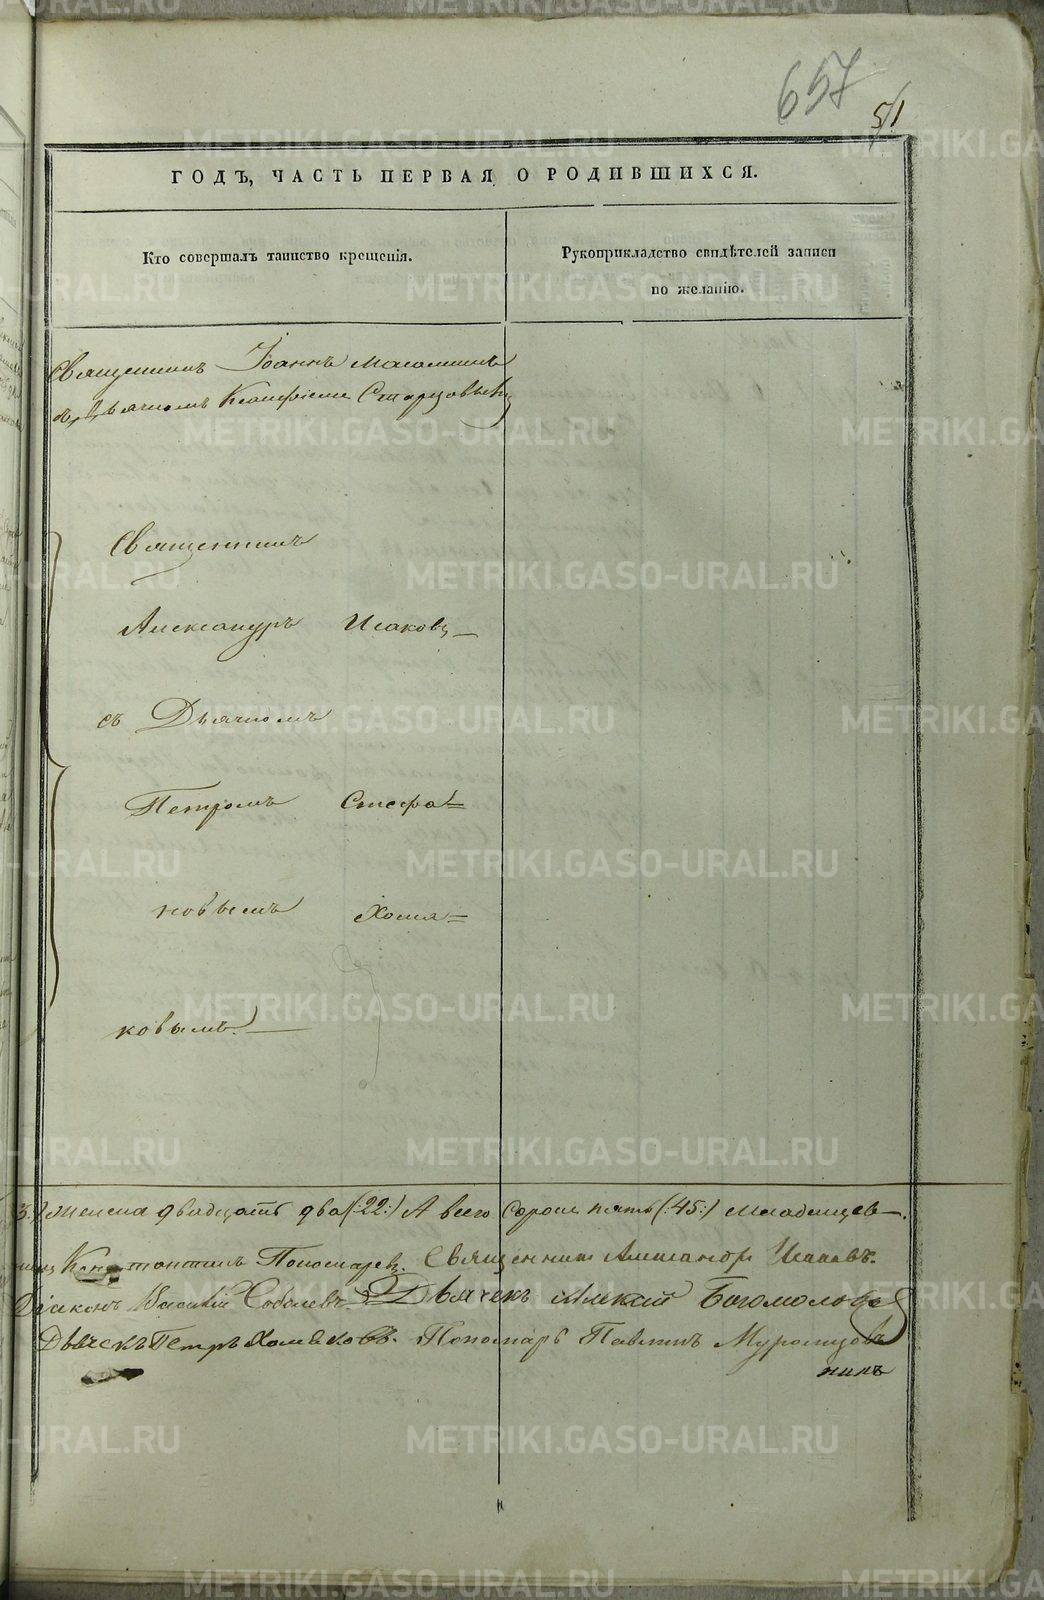 657
51
ГОДЪ, ЧАСТЬ ПЕРВАЯ О РОДИВШИХСЯ.
Кто совершалъ таинство крещенія.
Рукоприкладство свидѣтелей записи
по желанію.
Священникъ Іоаннъ
Священникъ
Александръ Исаковъ
съ Дьячкомъ
Петромъ Стефа=
новымъ Хомя=
ковымъ.
женска двадцать два (:22:) А всего сорокъ пять (:45:) младенцев.
Константинъ Пономаревъ. Священникъ Александръ Исаковъ.
Діаконъ Василій Соболевъ Дьячекъ Алексѣй Богомоловъ
Дьячекъ Петръ Хомяковъ. Пономарь Павлинъ
METRIKI.GASO-URAL.RU